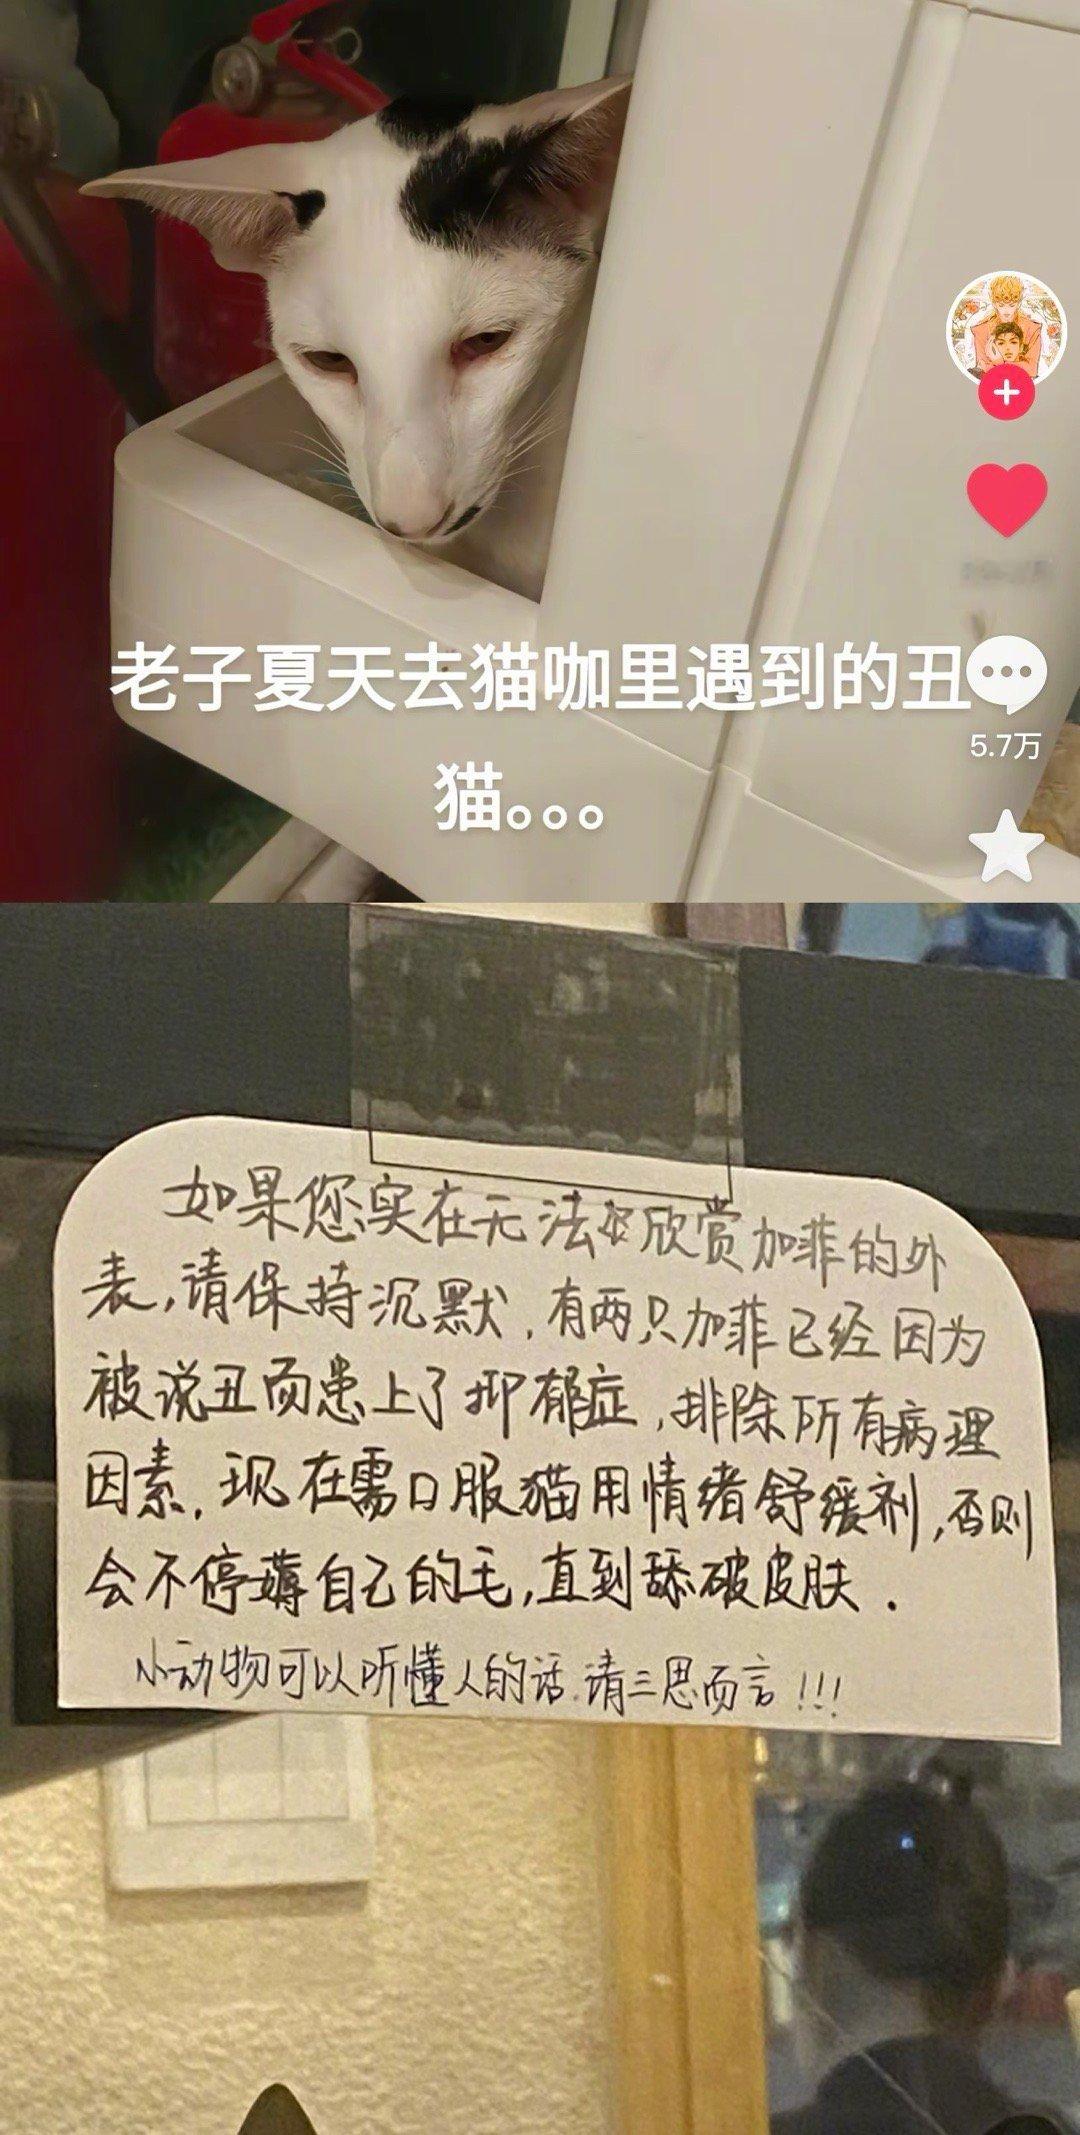 老子夏天去猫咖里遇到的丑
猫。。。
5.7万
如果您实在无法欣赏加菲的外
表,请保持沉默,有两只加菲已经因为
被说丑而患上了抑郁症,排除所有病理
因素,现在需口服猫用情绪舒缓剂,否则
会不停薅自己的毛,直到舔破皮肤.
小动物可以听懂人的话.请三思而言!!!